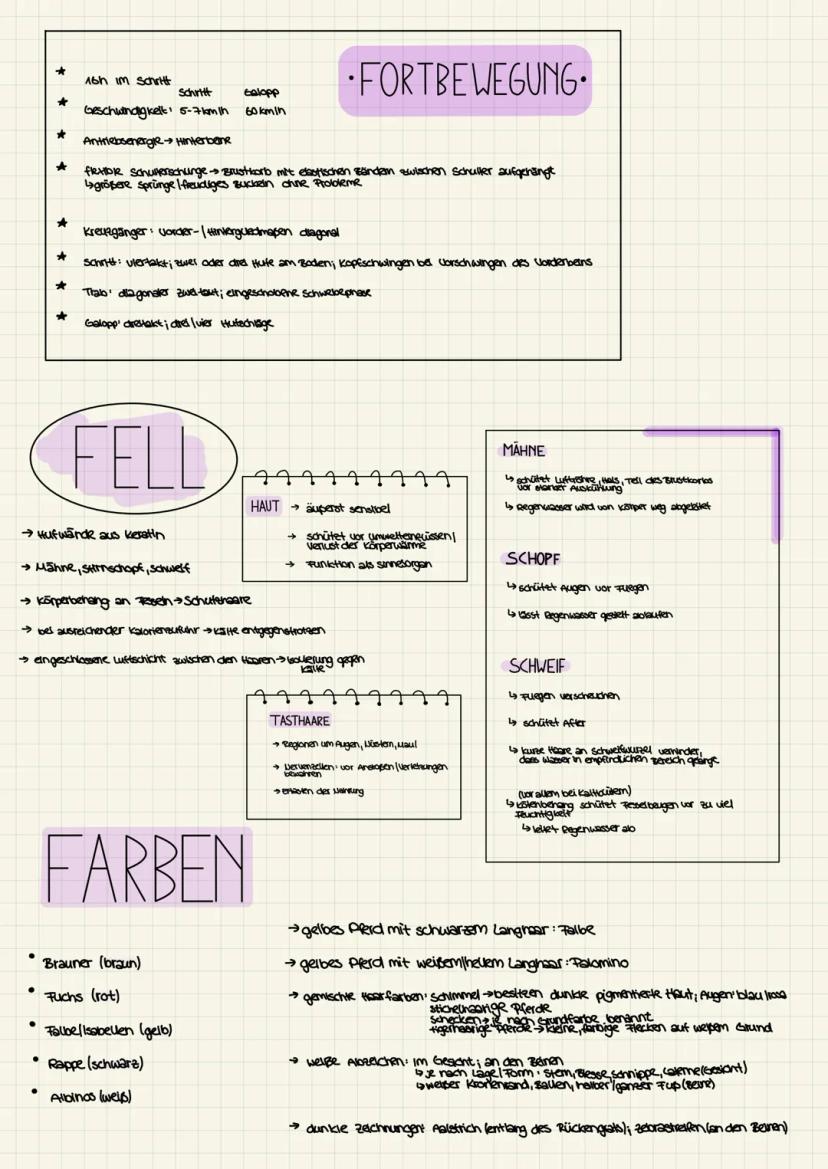 ·FORTBEWEGUNG·
16h im Schritt
Schritt Galopp
Geschwindigkeit: 5-7km/h 60km/h
Antriebsenergie → Hinterbeine
flexible → Brustkorb mit elastischen Bändern zwischen Schulter aufgehängt
↳ größere Sprünge/freudiges Buckeln ohne Probleme
Kreuzgänger: Vorder-/Hintergliedmaßen diagonal
Schritt: Viertakt; zwei oder drei Hufe am Boden; Kopfschwingen bei Vorschwingen des Vorderbeins
Trab: diagonaler Zweitakt; eingeschobene Schwebephase
Galopp: dreitakt; drei/vier Hufschläge
FELL
→ Hufwände aus Keratin
→ Mähne, Stirnschopf, Schweif
→ Körperbehang an Fesseln → Schutzhaare
→ bei ausreichender Kalorienzufuhr → Kälte entgegenstrotzen
→ eingeschlossene Luftschicht zwischen den Haaren → Isolierung gegen
Kälte
HAUT → äußerst sensibel
→ schützt vor Umwelteinflüssen/
Verlust der Körperwärme
→ Funktion als Sinnesorgan
TASTHAARE
→ Regionen um Augen, Nüstern, Maul
→ Nervenzellen: vor Anstoßen/Verletzungen
bewahren
→ Ertasten der Nahrung
MÄHNE
↳ schützt Luftröhre, Hals, Teil des Brustkorbs
vor starker Auskühlung
↳ Regenwasser wird von Körper weg abgeleitet
SCHOPF
↳ schützt Augen vor Fliegen
↳ lässt Regenwasser gezielt ablaufen
SCHWEIF
↳ Fliegen verscheuchen
↳ schützt After
↳ kurze Haare an Schweifwurzel verhinder,
dass Wasser in empfindlichen Bereich gelange
(vor allem bei Kaltblütern)
↳ Kötenbehang schützt Fesselbeugen vor zu viel
Feuchtigkeit
↳ leitet Regenwasser ab
FARBEN
Brauner (braun)
Fuchs (rot)
Falbe/Isabellen (gelb)
Rappe (schwarz)
Albinos (weiß)
→ gelbes Pferd mit schwarzem Langhaar: Falbe
→ gelbes Pferd mit weißem/hellem Langhaar: Palomino
→ gemischte Haarfarben: Schimmel → besitzen dunkle pigmentierte Haut; Augen blau/rosa
stichelhaarige Pferde
Schecken → je nach Grundfarbe benannt
tigerhaarige Pferde → kleine, farbige Flecken auf weißem Grund
→ weiße Abzeichen: im Gesicht; an den Beinen
↳ je nach Lage/Form: Stern, Blesse, Schnippe, Laterne (Gesicht)
↳ weißer Kronenrand, Ballen, halber/ganzer Fuß (Beine)
→ dunkle Zeichnungen: Aalstrich (entlang des Rückengrats); Zebrastreifen (an den Beinen)